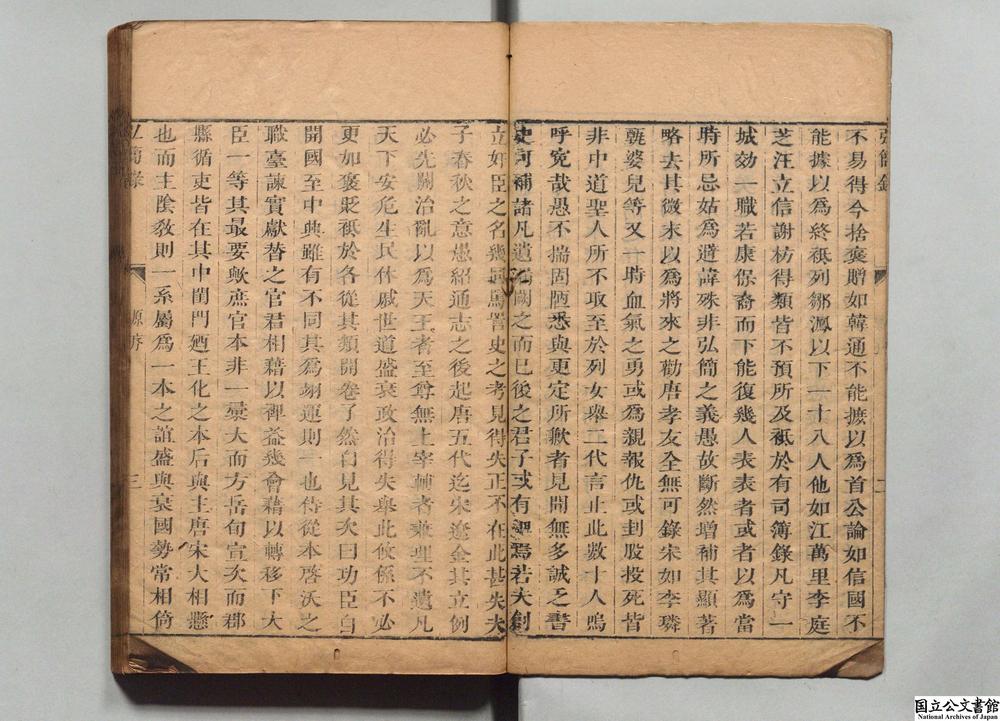 不易得今捨褒贈如韓通不能據以爲首公論如信國不
能據以爲終祗列鄒㵯以下一十八人他如江萬里李庭
芝汪立信謝枋得類皆不預所及祗於有司簿錄凡守一
城効一職若康保裔而下能復幾人表表者或者以爲當
時所忌姑爲避諱殊非弘簡之義愚故斷然增補其顯著
略去其微末以爲將來之勸唐孝友全無可錄宋如李璘
甄婆兒等又一時血氣之勇或爲親報仇或刲股投死皆
非中道聖人所不取至於列女舉二代言止此數十人嗚
呼寃哉愚不揣固陋悉與更定所歉者見聞無多誠乏書
史可補諸凡遺 闕之而已後之君子或有 焉若夫創
立奸臣之名幾與罵詈史之考見得失正不在此甚失夫
子春秋之意愚紹通志之後起唐五代迄宋遼金其立例
必先關治亂以爲天王者至尊無上宰輔者兼理不遺凡
天下安危生民休戚世道盛衰政治得失舉此攸係不必
更如褒貶祗於各從其類開卷了然自見其次曰功臣自
開國至中興雖有不同其爲翊運則一也侍從本啓沃之
職臺諫實獻替之官君相藉以裨益幾會藉以轉移下大
臣一等其最要歟庶官本非一彙大而方岳旬宣次而郡
縣循吏皆在其中閨門廼王化之本后與主唐宋大相懸
也而主陰敎則一系屬爲一本之誼盛與衰國勢常相倚
弘簡錄
原序
三
国立公文書館
National Archives of Japan